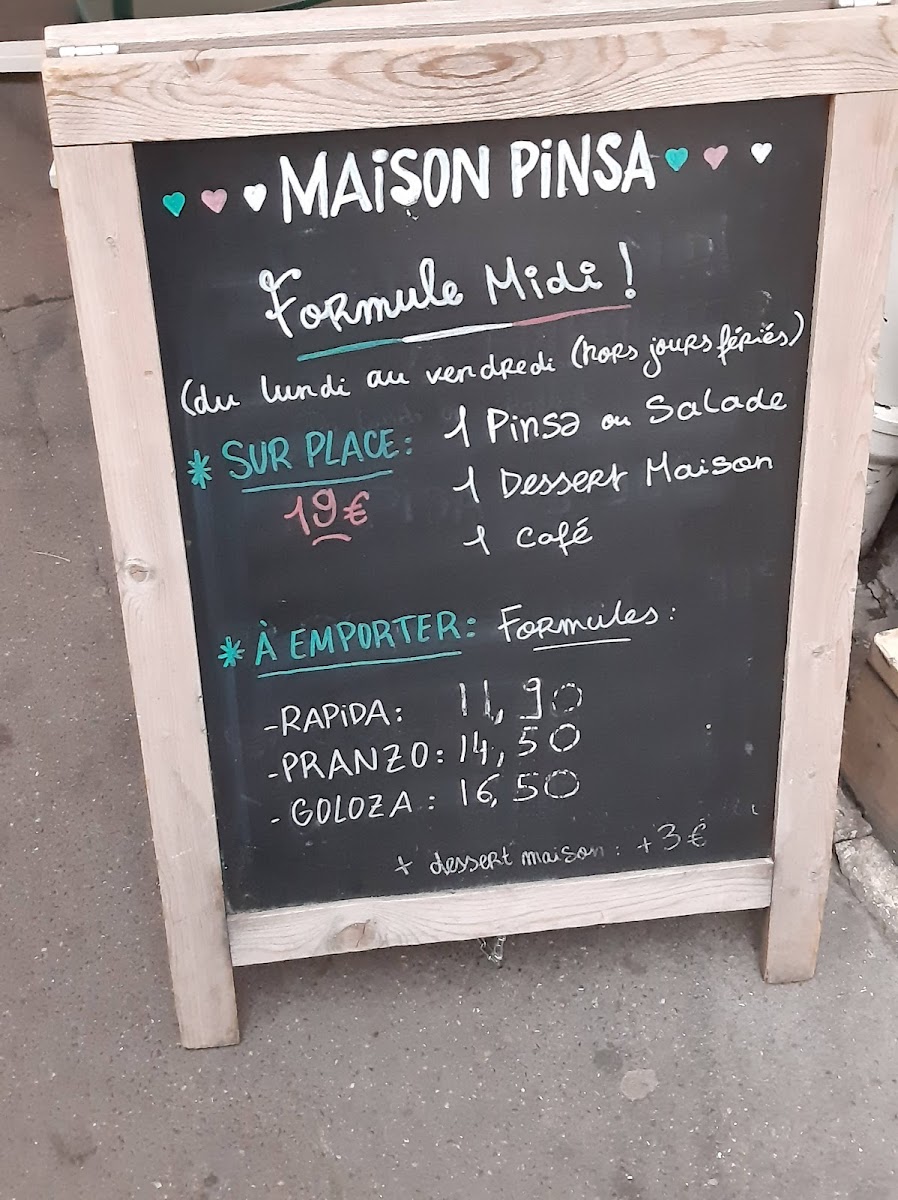 MAiSON PiNSA
Formule Midi !
(du lundi au vendredi (hors jours fériés)
* SUR PLACE : 1 Pinsa ou Salade
19€ 1 Dessert Maison
1 Café
* À EMPORTER : Formules :
- RAPiDA : 11,90
- PRANZO : 14,50
- GOLOZA : 16,50
+ dessert maison : + 3 €